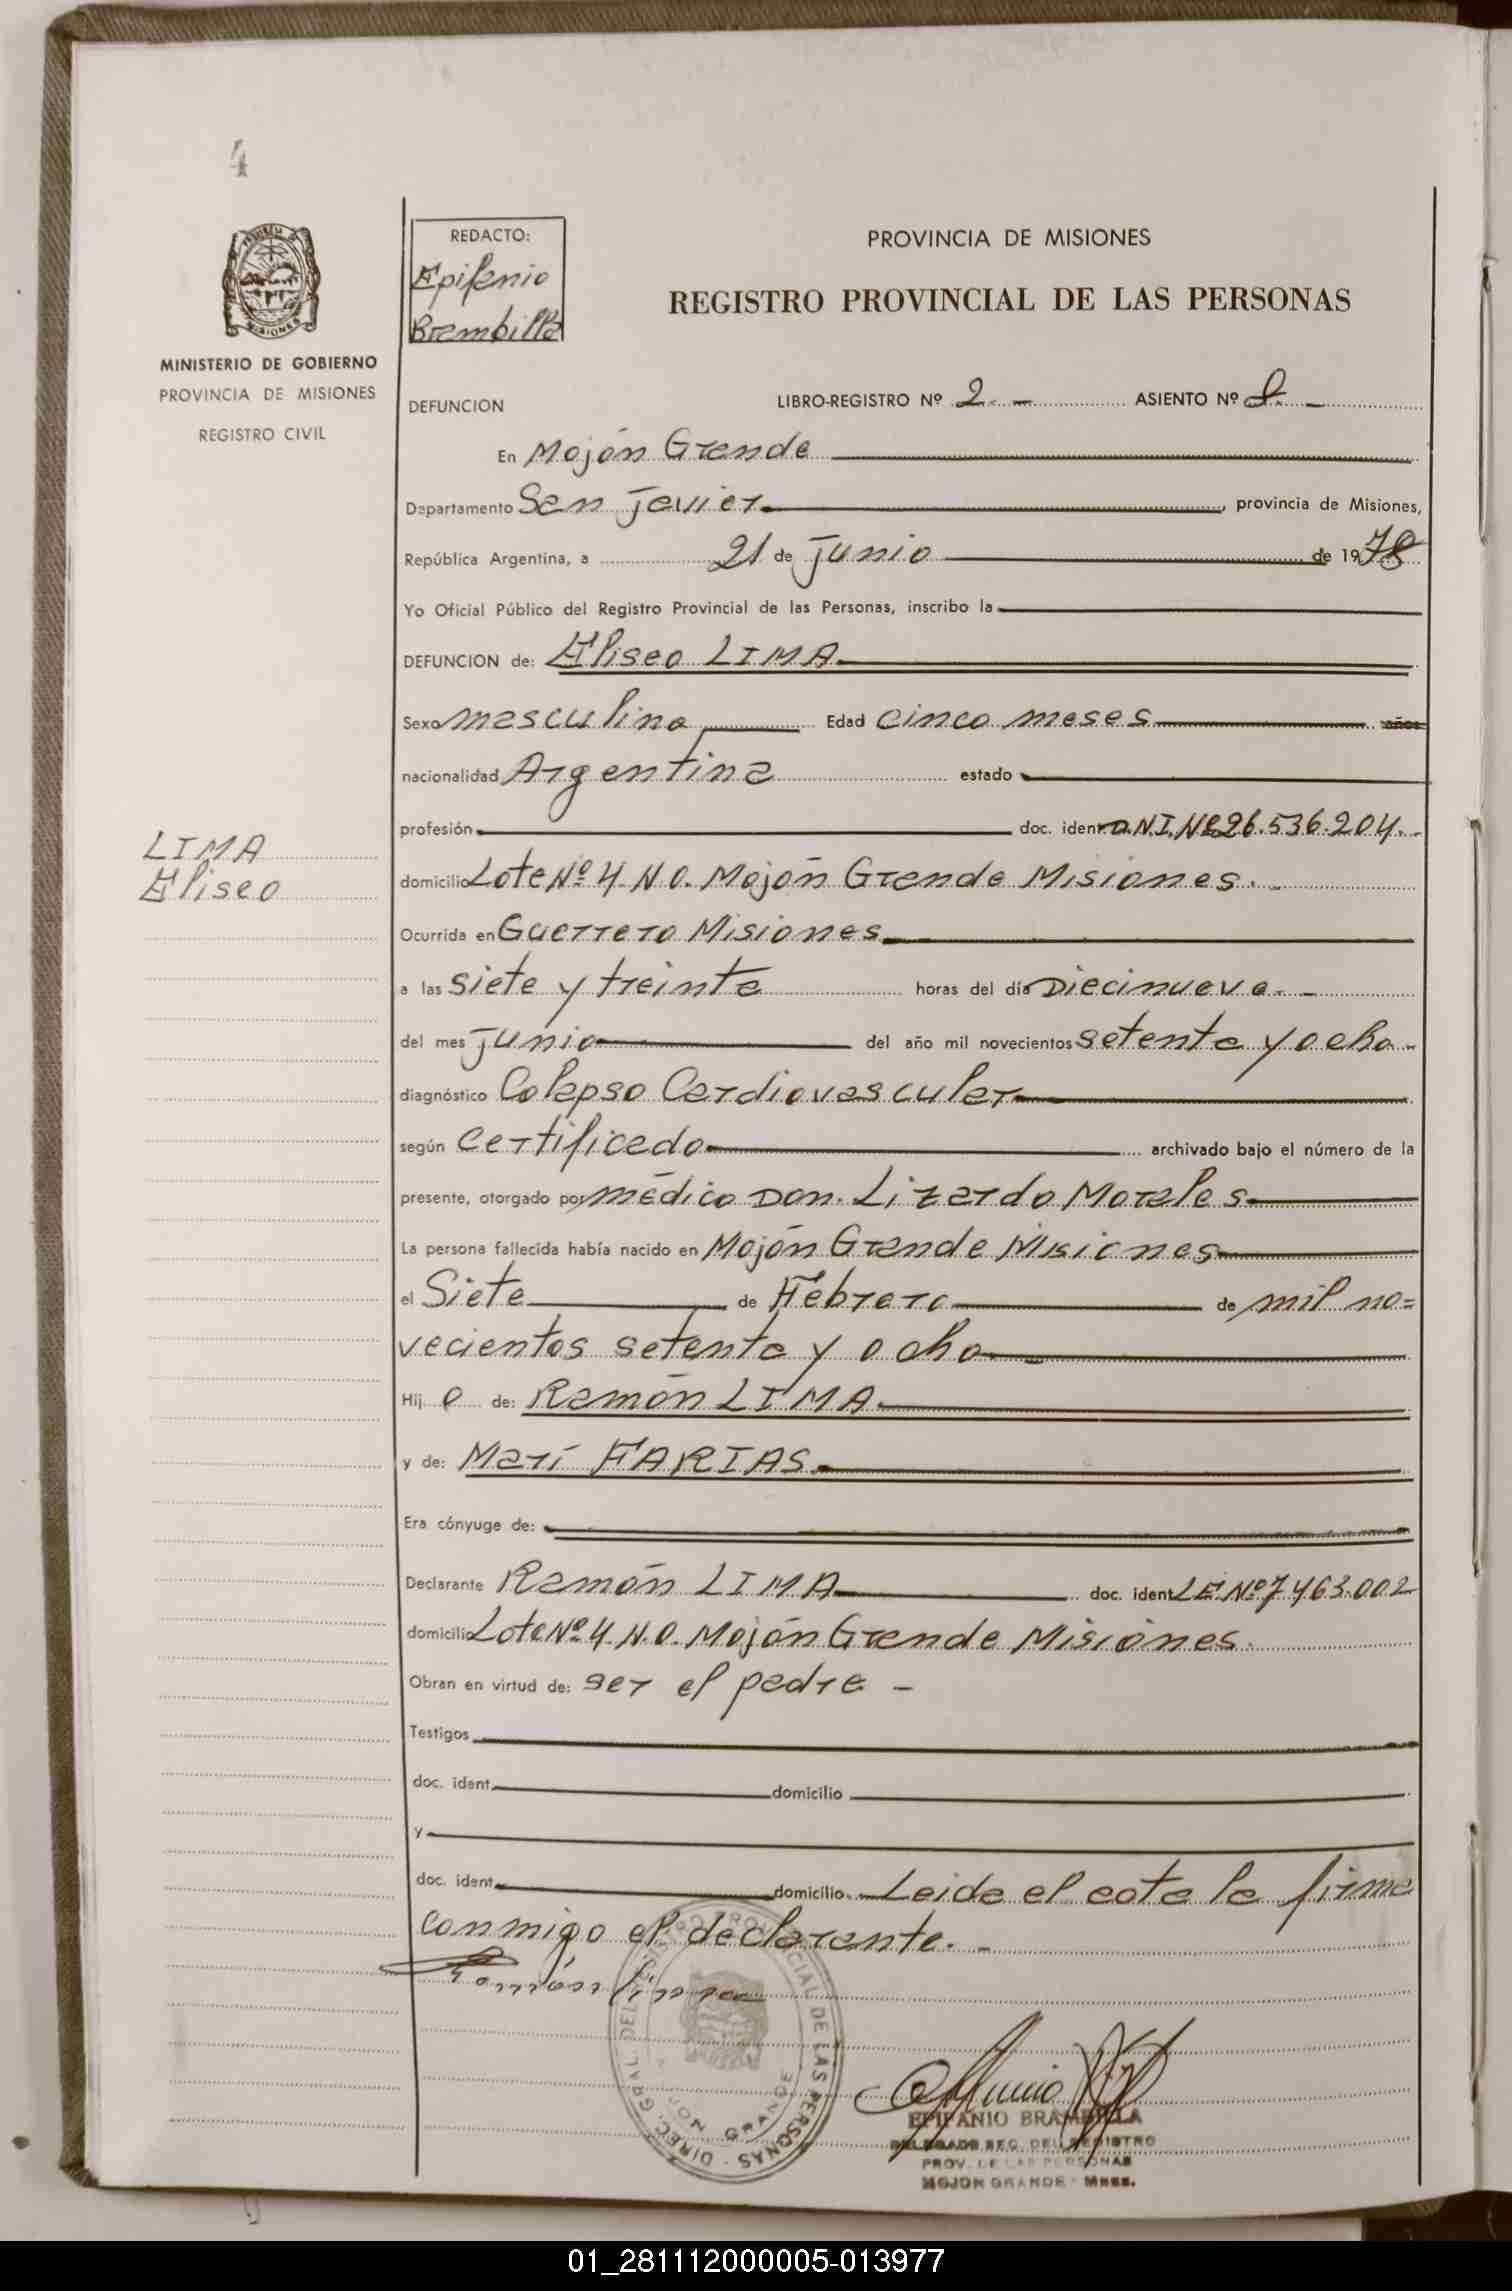 4
PROVINCIA DE MISIONES
MINISTERIO DE GOBIERNO
PROVINCIA DE MISIONES
REGISTRO CIVIL
REDACTO:
Epifanio
Brambilla
PROVINCIA DE MISIONES
REGISTRO PROVINCIAL DE LAS PERSONAS
DEFUNCION LIBRO-REGISTRO Nº 2.- ASIENTO Nº 8.-
En Mojón Grande
Departamento San Javier, provincia de Misiones,
República Argentina, a 21 de Junio de 1978
Yo Oficial Público del Registro Provincial de las Personas, inscribo la
DEFUNCION de: Eliseo LIMA
Sexo masculino Edad cinco meses años
nacionalidad Argentina estado
profesión doc. ident. D.N.I.Nº26.536.204.-
LIMA
Eliseo
domicilio Lote Nº 4. N.O. Mojón Grande Misiones.-
Ocurrida en Guerrero Misiones
a las siete y treinta horas del día Diecinueve.-
del mes Junio del año mil novecientos setenta y ocho.-
diagnóstico Colapso Cardiovascular
según Certificado archivado bajo el número de la
presente, otorgado por médico Don. Lizardo Morales
La persona fallecida había nacido en Mojón Grande Misiones
el Siete de Febrero de mil no=
vecientos setenta y ocho
Hij o de: Ramón LIMA
y de: Marí FARIAS
Era cónyuge de:
Declarante Ramón LIMA doc. ident L.E.Nº7463.002
domicilio Lote Nº 4. N.O. Mojón Grande Misiones.
Obran en virtud de: ser el padre -
Testigos
doc. ident. domicilio
y
doc. ident. domicilio Leida el acta la firma
conmigo el declarante.-
Ramón Lima
DIREC. GRAL. DEL REGISTRO PROVINCIAL DE LAS PERSONAS
MOJON GRANDE
EPIFANIO BRAMBILLA
DELEGADO REG. DEL REGISTRO
PROV. DE LAS PERSONAS
MOJON GRANDE - Mnes.
01_281112000005-013977